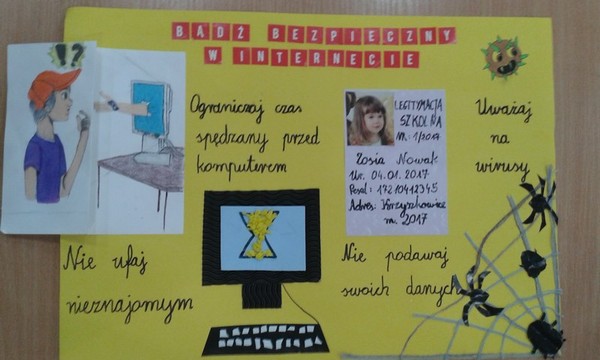 BĄDŹ BEZPIECZNY
W INTERNECIE
!?
Ograniczaj czas
spędzany przed
komputerem
LEGITYMACJA
SZKOLNA
NR: 1/2017
Zosia Nowak
Ur. 04.01.2017
Pesel: 17210412345
Adres: Krzyszkowice
m. 2017
Uważaj
na
wirusy
Nie ufaj
nieznajomym
Nie podawaj
swoich danych